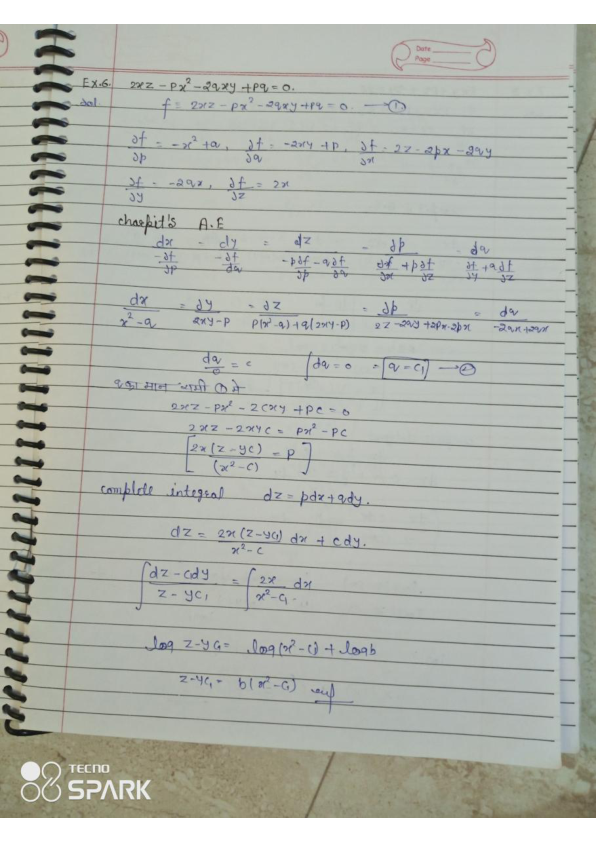 Date
Page
Ex.6. 2xz - px² - 2qxy + pq = 0.
Sol f = 2xz - px² - 2qxy + pq = 0 —①
∂f/∂p = -x² + q, ∂f/∂q = -2xy + p, ∂f/∂x = 2z - 2px - 2qy
∂f/∂y = -2qx, ∂f/∂z = 2x
Charpit's A.E
dx/(-∂f/∂p) = dy/(-∂f/∂q) = dz/(-p∂f/∂p - q∂f/∂q) = ∂p/(∂f/∂x + p∂f/∂z) = dq/(∂f/∂y + q∂f/∂z)
dx/(x² - q) = ∂y/(2xy - p) = ∂z/(p(x² - q) + q(2xy - p)) = ∂p/(2z - 2qy + 2px - 2px) = dq/(-2qx + 2qx)
dq/0 = c ∫dq = 0 = [q = C₁] —②
qका मान समी ① में
2xz - px² - 2cxy + pc = 0
2xz - 2xyc = px² - pc
[2x(z - yc)/(x² - c) = p]
complete integral dz = pdx + qdy.
dz = 2x(z - yc₁)/(x² - c) dx + c dy.
∫(dz - c₁dy)/(z - yc₁) = ∫2x/(x² - c₁) dx
log z - yc₁ = log(x² - c₁) + log b
z - yc₁ = b(x² - c₁)
TECNO
SPARK